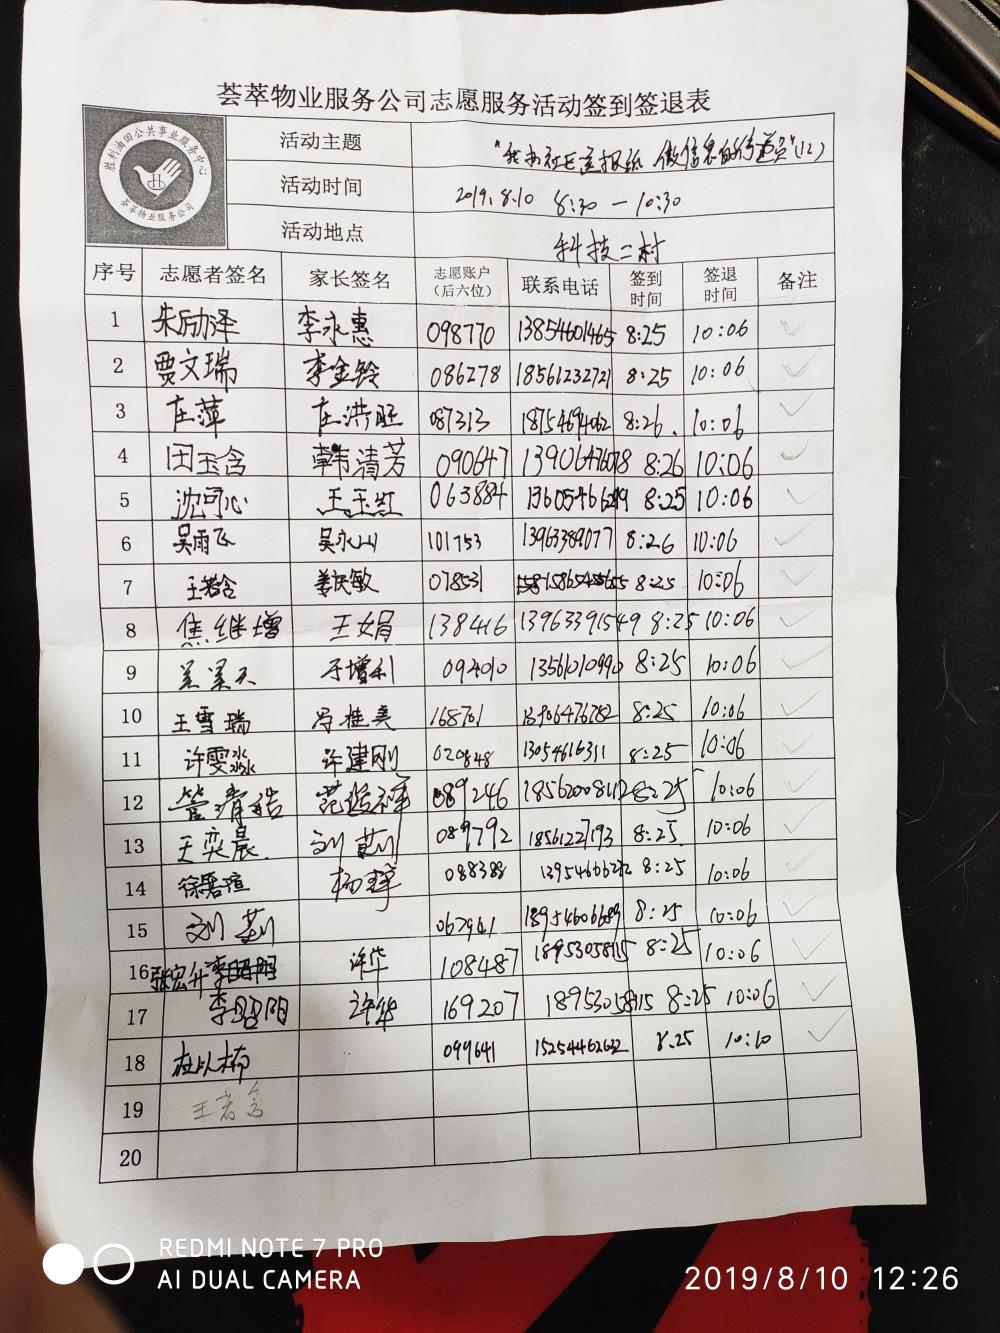 荟萃物业服务公司志愿服务活动签到签退表
胜利油田公共事业服务中心
荟萃物业服务公司
活动主题
活动时间 2019.8.10 8:30 — 10:30
活动地点 科技二村
序号 志愿者签名 家长签名 志愿账户（后六位） 联系电话 签到时间 签退时间 备注
1 朱励泽 李永惠 098770 13854601465 8:25 10:06
2 贾文瑞 李金铃 086278 18561232721 8:25 10:06
3 庄萍 庄洪旺 087313 18754694062 8:26 10:06
4 田玉含 韩清芳 090647 8:26 10:06
5 沈可心 王玉红 063884 8:25 10:06
6 吴雨飞 吴永山 101753 13963389077 8:26 10:06
7 王若含 姜庆敏 078531 8:25 10:06
8 焦继增 王女娟 138416 13963391549 8:25 10:06
9 于增利 094010 13561010990 8:25 10:06
10 王雪瑞 冯桂美 168701 13906476782 8:25 10:06
11 许雯淼 许建刚 020848 13054616311 8:25 10:06
12 089246 8:25 10:06
13 王奕晨 刘莉 089792 8:25 10:06
14 088388 8:25 10:06
15 刘莉 067941 18954606689 8:25 10:06
16 张宏升 许华 108487 18953058115 8:25 10:06
17 李昭阳 许华 169207 18953058115 8:25 10:06
18 杜以楠 099641 15254462622 8:25 10:10
19 王若含
20
REDMI NOTE 7 PRO
AI DUAL CAMERA
2019/8/10 12:26